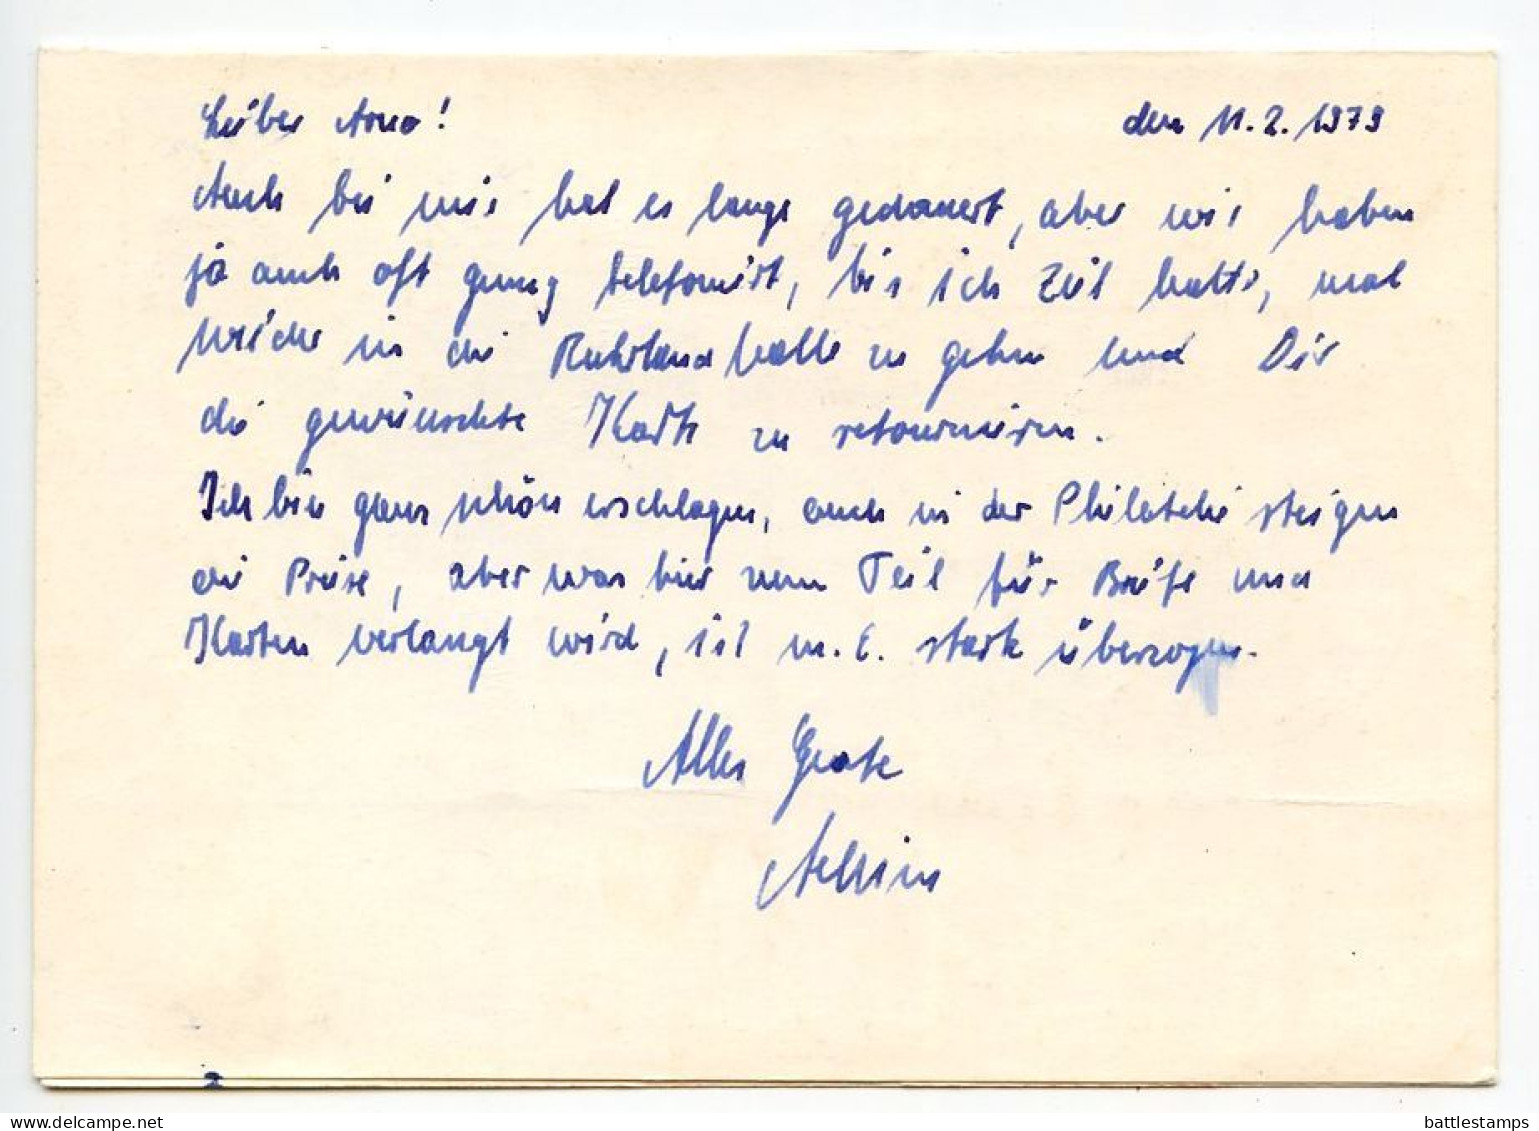 Lieber Arno! den 11.2.1979
Auch bei mir hat es lange gedauert, aber wir haben
ja auch oft genug telefoniert, bis ich Zeit hatte, mal
wieder in die Ruhrlandhalle zu gehen und Dir
die gewünschte Karte zu retournieren.
Ich bin ganz schön erschlagen, auch in der Philatelie steigen
die Preise, aber was hier zum Teil für Briefe und
Karten verlangt wird, ist m.E. stark überzogen.
Alles Gute
delcampe.net
battlestamps